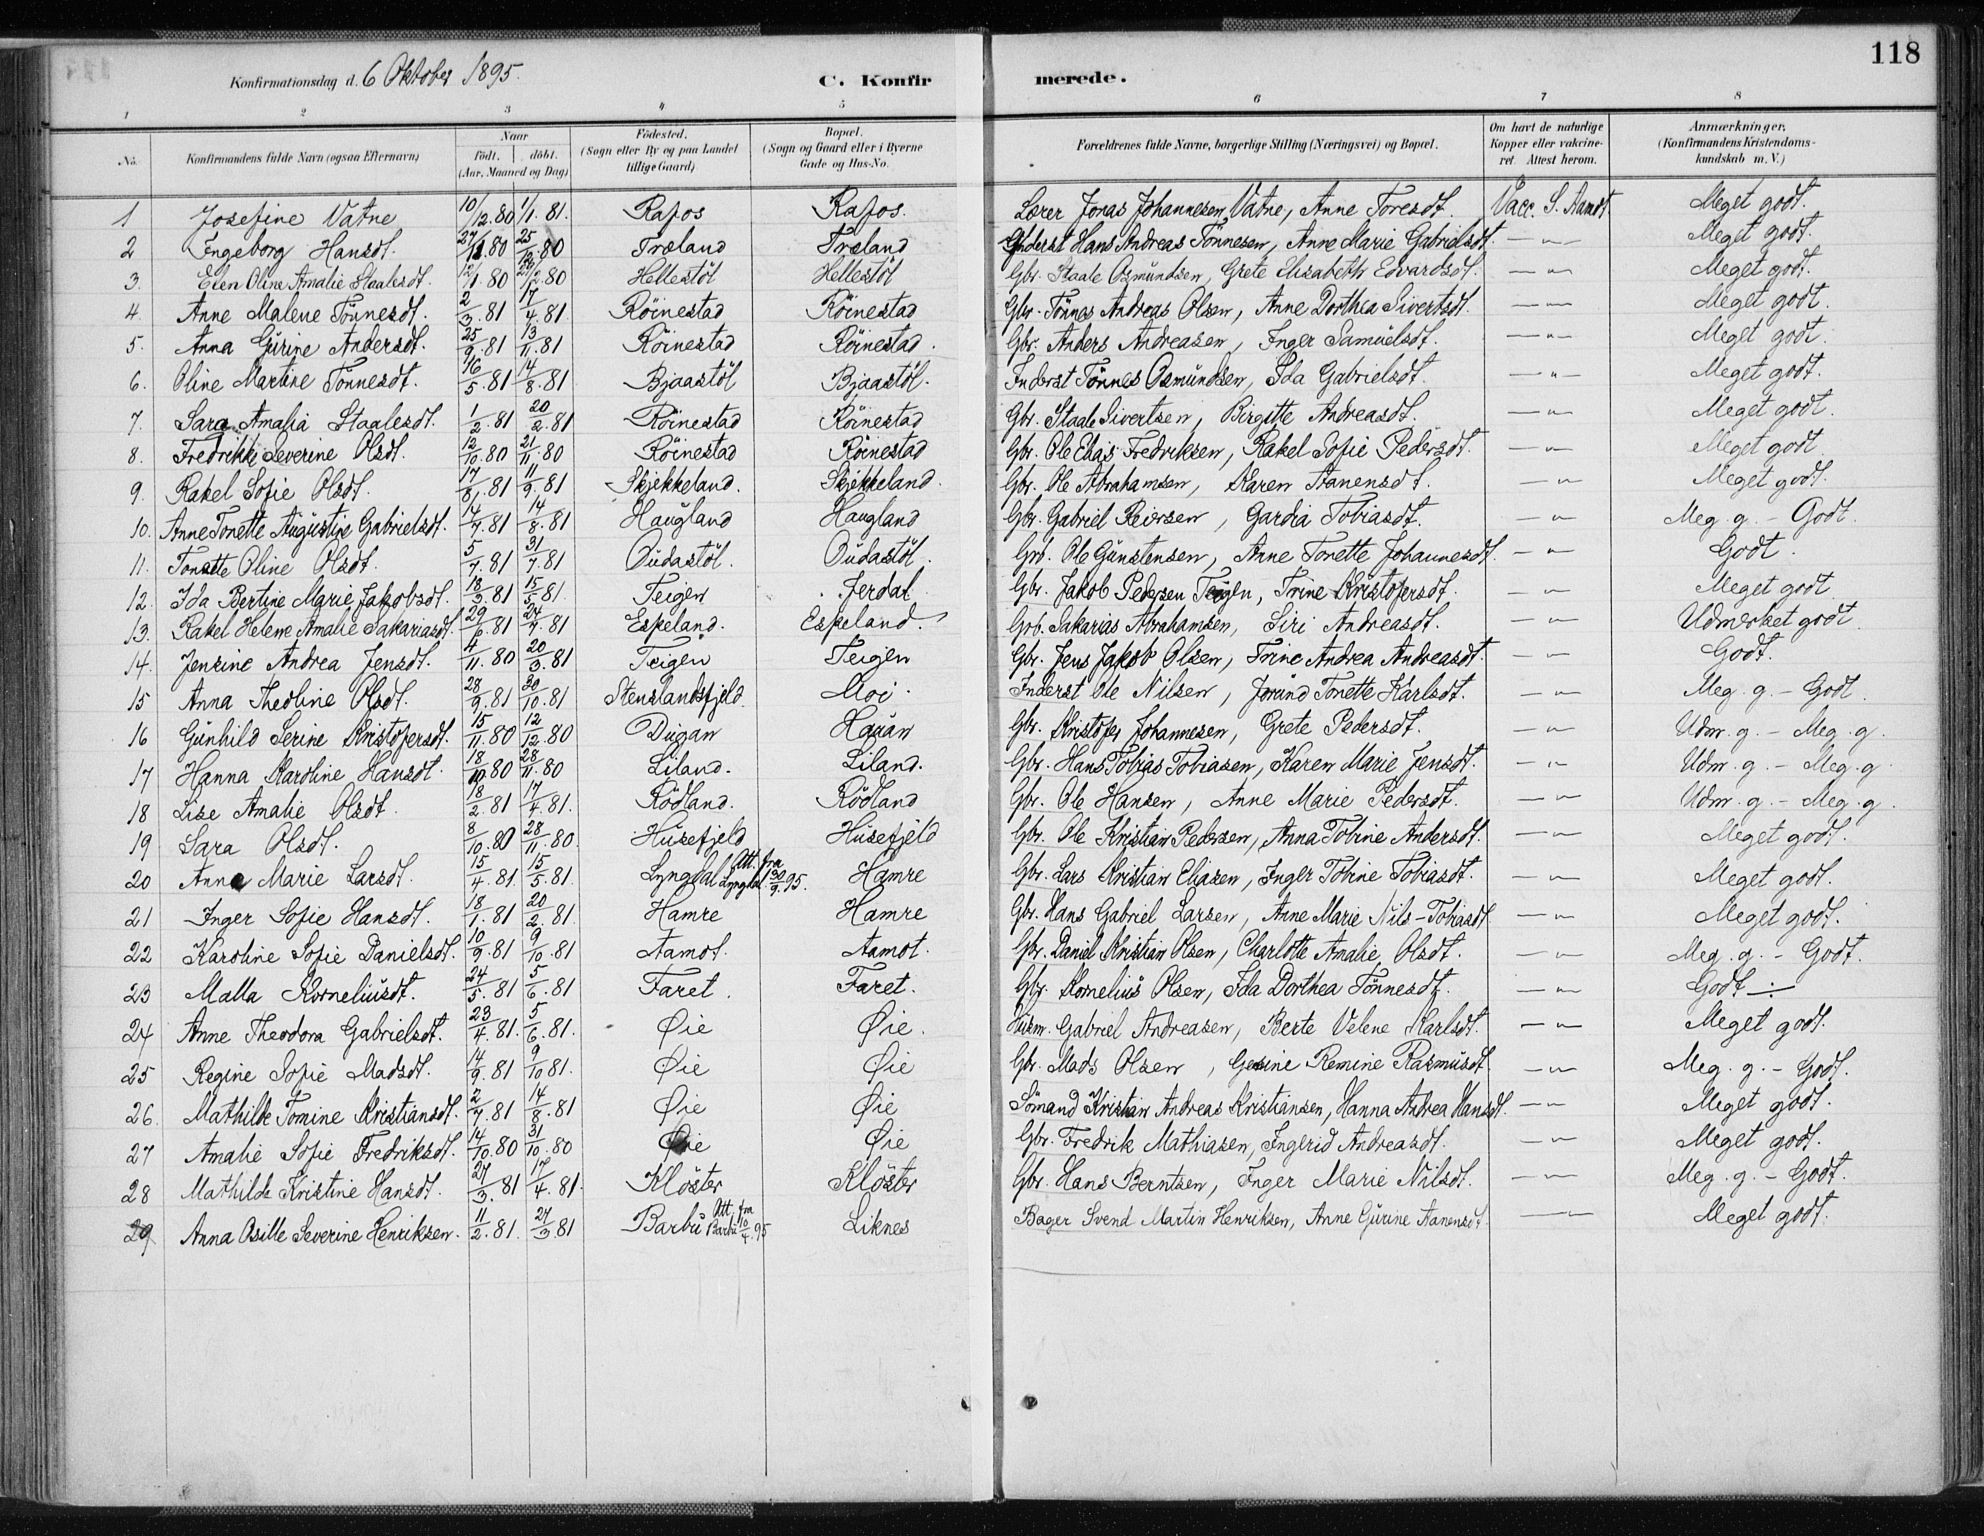 118
Konfirmationsdag d. 6 Oktober 1895.
C. Konfirmerede.
1 2 3 4 5 6 7 8
No. Konfirmandens fulde Navn (ogsaa Efternavn) Naar født. døbt. (Aar, Maaned og Dag) Fødested. (Sogn eller By og paa Landet tillige Gaard) Bopæl. (Sogn og Gaard eller i Byerne Gade og Hus-No. Forældrenes fulde Navne, borgerlige Stilling (Næringsvei) og Bopæl. Om havt de naturlige Kopper eller vakcineret. Attest herom. Anmærkninger. (Konfirmandens Kristendomskundskab m. V.)
1 Josefine Vatne 10/12.80 1/1.81. Rafos Rafos. Lærer Jonas Johannesen Vatne, Anne Toresdt. Vacc. S. Aamdt Meget godt.
2 Ingeborg Hansdt. 80 25 80 Træland Træland Inderst Hans Andreas Tønnesen, Anne Marie Gabrielsdt. — " — Meget godt.
3. Elen Oline Amalie Staalesdt. 80 80 Hellestøl Hellestøl Gbr. Staale Osmundsen, Grete Elisabeth Edvardsdt. — " — Meget godt.
4. Anne Malene Tønnesdt. 2/3.81 17/4.81 Röinestad Röinestad Gbr. Tønnes Andreas Olsen, Anne Dorthea Sivertsdt. — " — Meget godt.
5. Anna Gurine Andersdt. 25/9.81 13/11.81 Röinestad Röinestad. Gbr. Anders Andreasen, Inger Samuelsdt. — " — Meget godt.
6. Oline Martine Tønnesdt. 16/5.81 14/8.81 Bjaastøl Bjaastøl. Inderst Tønnes Osmundsen, Ida Gabrielsdt. — " — Meget godt.
7. Sara Amalia Staalesdt. 1/2.81 20/2.81 Röinestad Röinestad Gbr. Staale Sivertsen, Birgitte Andreasdt. — " — Meget godt.
8. Fredrikke Severine Olsdt. 12/10.80 21/11.80 Röinestad Röinestad Gbr. Ole Elias Fredriksen, Rakel Sofie Pedersdt. — " — Meget godt
9. Rakel Sofie Olsdt. 17/8.81 11/9.81 Skjekkeland. Skjekkeland. Gbr. Ole Abrahamsen, Karen Aanensdt. — " — Meget godt.
10. Anne Tonette Augustine Gabrielsdt. 14/7.81 14/8.81 Haugland Haugland Gbr. Gabriel Reiersen, Gardia Tobiasdt. — " — Meg. g. – Godt.
11. Tonette Oline Olsdt. 5/7.81 31/7.81 Oudastøl. Oudastøl. Grb. Ole Gunstensen, Anne Tonette Johannesdt. — " — Godt.
12. Ida Bertine Marie Jakobsdt. 18/3.81 15/5.81. Teigen Jerdal Gbr. Jakob Pedersen Teigen, Trine Kristofersdt. — " — Meget godt
13. Rakel Helene Amalie Sakariasdt. 29/6.81 24/7.81 Espeland. Espeland. Grb. Sakarias Abrahamsen, Siri Andreasdt. — " — Udmerket godt
14. Jensine Andrea Jensdt. 4/11.80 20/3.81 Teigen Teigen Gbr. Jens Jakob Olsen, Trine Andrea Andreasdt. — " — Godt.
15 Anna Theoline Olsdt. 28/9.81 30/10.81 Stenslandsfjeld. Moi. Inderst Ole Nilsen, Jorund Tonette Karlsdt. — " — Meg. g. – Godt
16 Gunhild Serine Kristofersdt. 15/11.80 12/12.80 Dugan Hauan Gbr. Kristofer Johannesen, Grete Pedersdt. — " — Udm. g. – Meg. g.
17 Hanna Karoline Hansdt. 18/10.80 28/11.80 Liland. Liland. Gbr. Hans Tobias Tobiasen, Karen Marie Jensdt. — " — Udm. g. – Meg. g
18 Lise Amalie Olsdt. 18/2.81 17/4.81. Rödland. Rödland Gbr. Ole Hansen, Anne Marie Pedersdt. — " — Udm. g. – Meg. g.
19 Sara Olsdt. 8/10.80 28/11.80. Husefjeld Husefjeld Gbr. Ole Kristian Pedersen, Anna Tobine Andersdt. — " — Meget godt.
20 Anne Marie Larsdt. 15/4.81. 15/5.81. Lyngdal Att. fra Lyngdal 30/9.95. Hamre Gbr. Lars Kristian Eliasen, Inger Tobine Tobiasdt. — " — Meget godt.
21 Inger Sofie Hansdt. 18/1.81 20/2.81 Hamre Hamre Gbr. Hans Gabriel Larsen, Anne Marie Nils-Tobiasdt — " — Meget godt.
22 Karoline Sofie Danielsdt. 10/9.81 9/10.81 Aamot. Aamot. Gbr. Daniel Kristian Olsen, Charlotte Amalie Olsdt. — " — Meg. g. – Godt.
23 Malla Korneliusdt. 24/5.81 5/6.81 Faret. Faret. Gbr. Kornelius Olsen, Ida Dorthea Tønnesdt. — " — Godt
24 Anne Theodora Gabrielsdt. 23/4.81. 5/6.81. Øie Øie. Husm. Gabriel Andreasen, Berte Velene Karlsdt. — " — Meget godt.
25 Regine Sofie Madsdt. 14/9.81 9/10 81. Øie Øie Gbr. Mads Olsen, Gesine Remine Rasmusdt. — " — Meg. g. – Godt.
26. Mathilde Tomine Kristiansdt. 2/7.81 14/8.81 Øie Øie Sømand Kristian Andreas Kristiansen, Hanna Andrea Hansdt. — " — Meget godt.
27 Amalie Sofie Fredriksdt. 14/10.80 31/10.80 Øie Øie Gbr. Fredrik Mathiasen, Ingerid Andreasdt. — " — Meget godt.
28 Mathilde Kristine Hansdt. 27/3.81 17/4.81. Kløster Kløster Gbr. Hans Berntsen, Inger Marie Nilsdt. — " — Meg. g. – Godt.
29 Anna Osille Severine Henriksen. 11/2.81. 27/3 81 Barbu Att. fra Barbu 10/4.95 Liknes Bager Svend Martin Henriksen, Anne Gurine Aanensdt. — " — Meget godt.